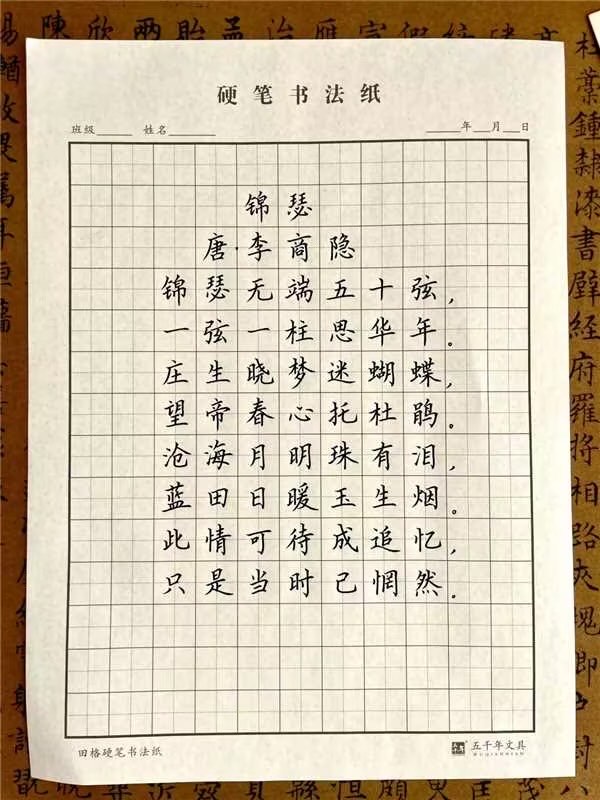 硬笔书法纸
班级______ 姓名________ ______年___月___日
锦瑟
唐·李商隐
锦瑟无端五十弦，
一弦一柱思华年。
庄生晓梦迷蝴蝶，
望帝春心托杜鹃。
沧海月明珠有泪，
蓝田日暖玉生烟。
此情可待成追忆，
只是当时已惘然。
田格硬笔书法纸
五千年文具
WUQIANNIAN
杜藁鍾隸漆書壁經
府羅將相路俠槐卿